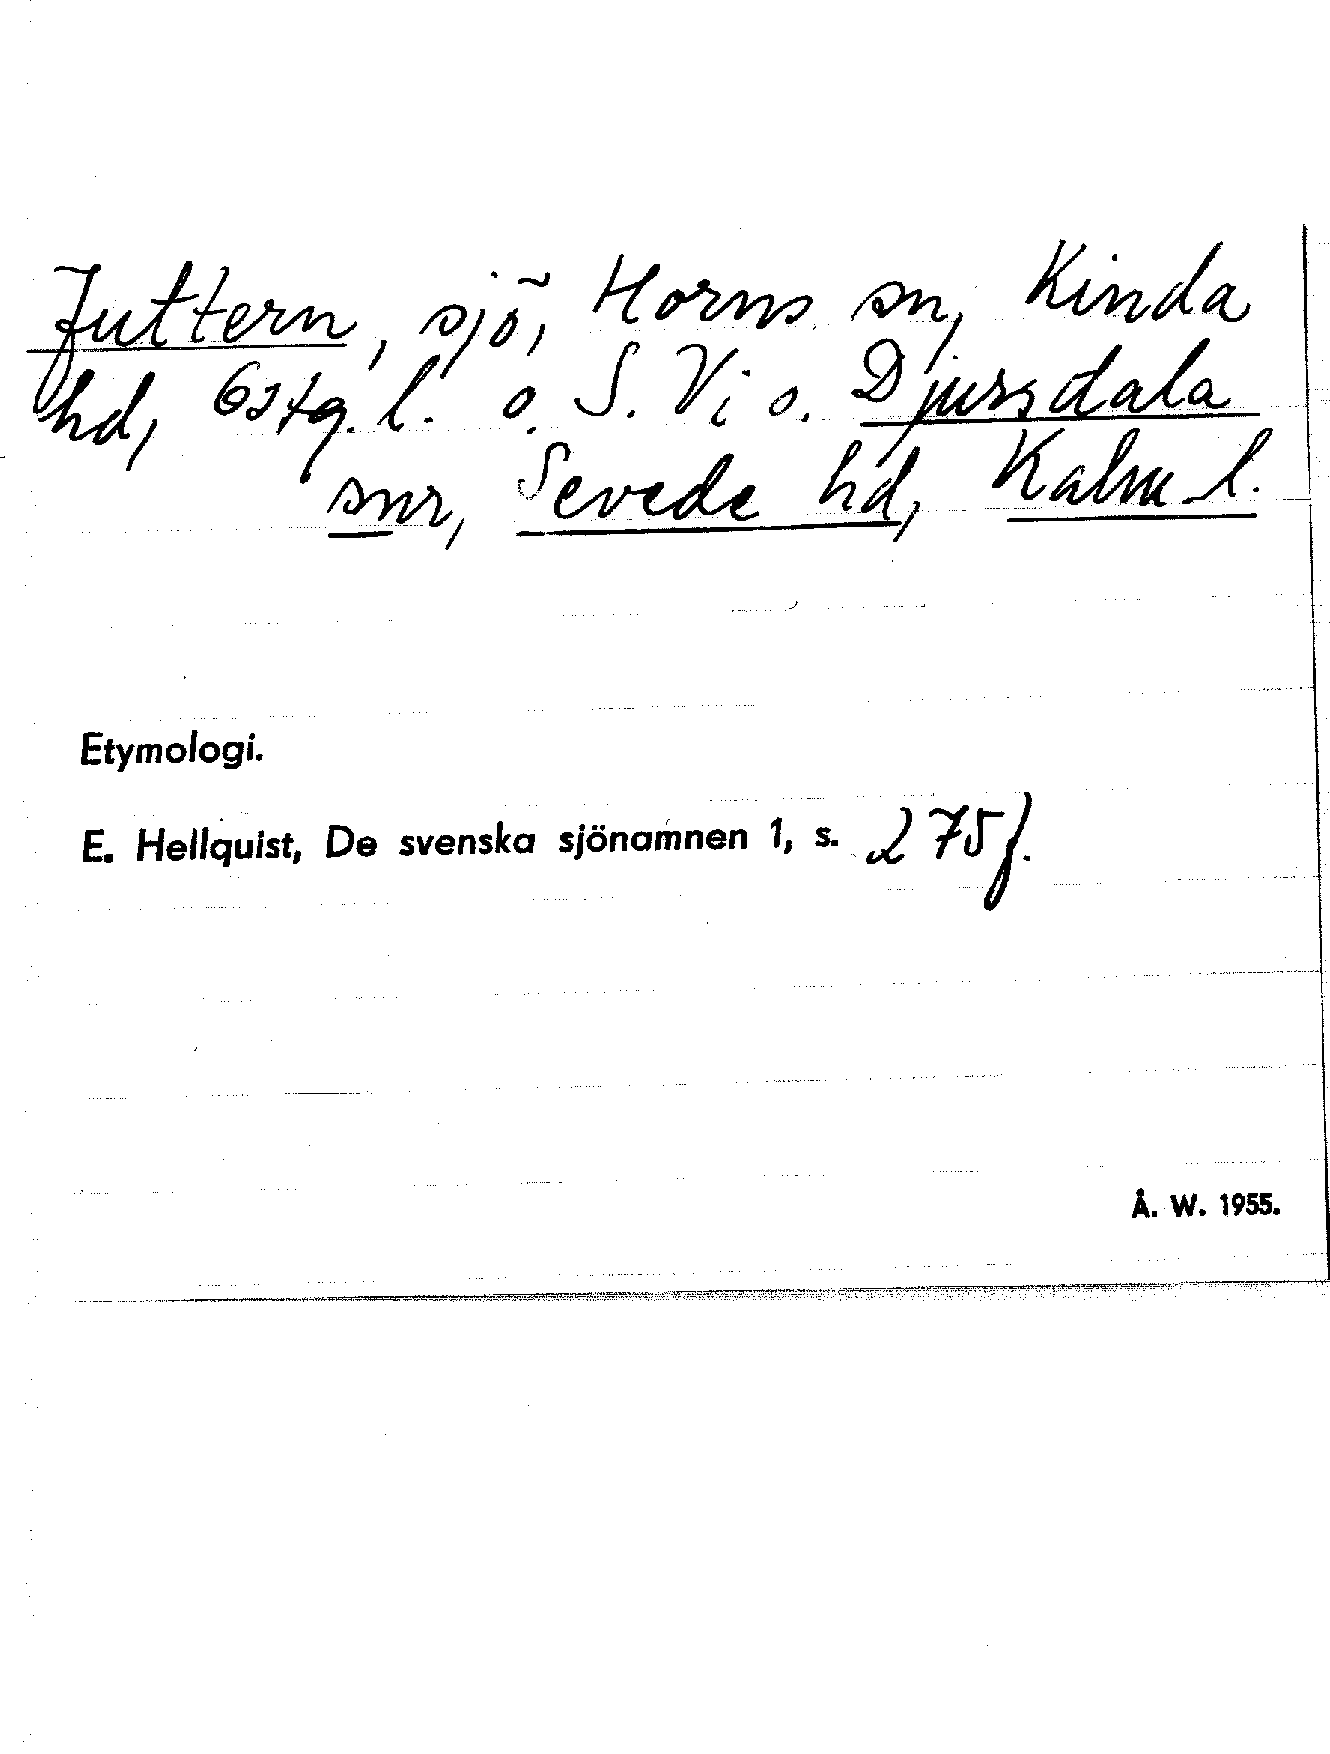 Juttern, sjö, Horns sn, Kinda
hd, Östg. l. o. S. Vi o. Djursdala
snr, Sevede hd, Kalm l.
Etymologi.
E. Hellquist, De svenska sjönamnen 1, s. 275 f.
Å. W. 1955.